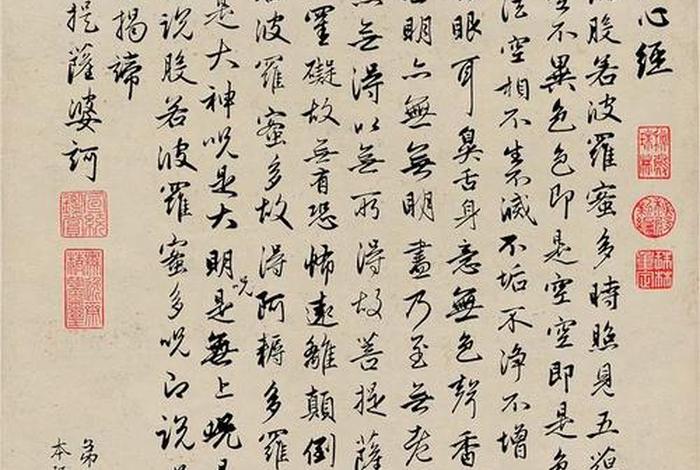 心經
般若波羅蜜多時照見五蘊
不異色色即是空空即是色
法空相不生不滅不垢不淨不增
眼耳鼻舌身意無色聲香
明亦無無明盡乃至無老
無得以無所得故菩提薩
罣礙故無有恐怖遠離顛倒
波羅蜜多故得阿耨多羅
是大神咒是大明咒是無上咒是
說般若波羅蜜多咒即說
揭諦
提薩婆訶